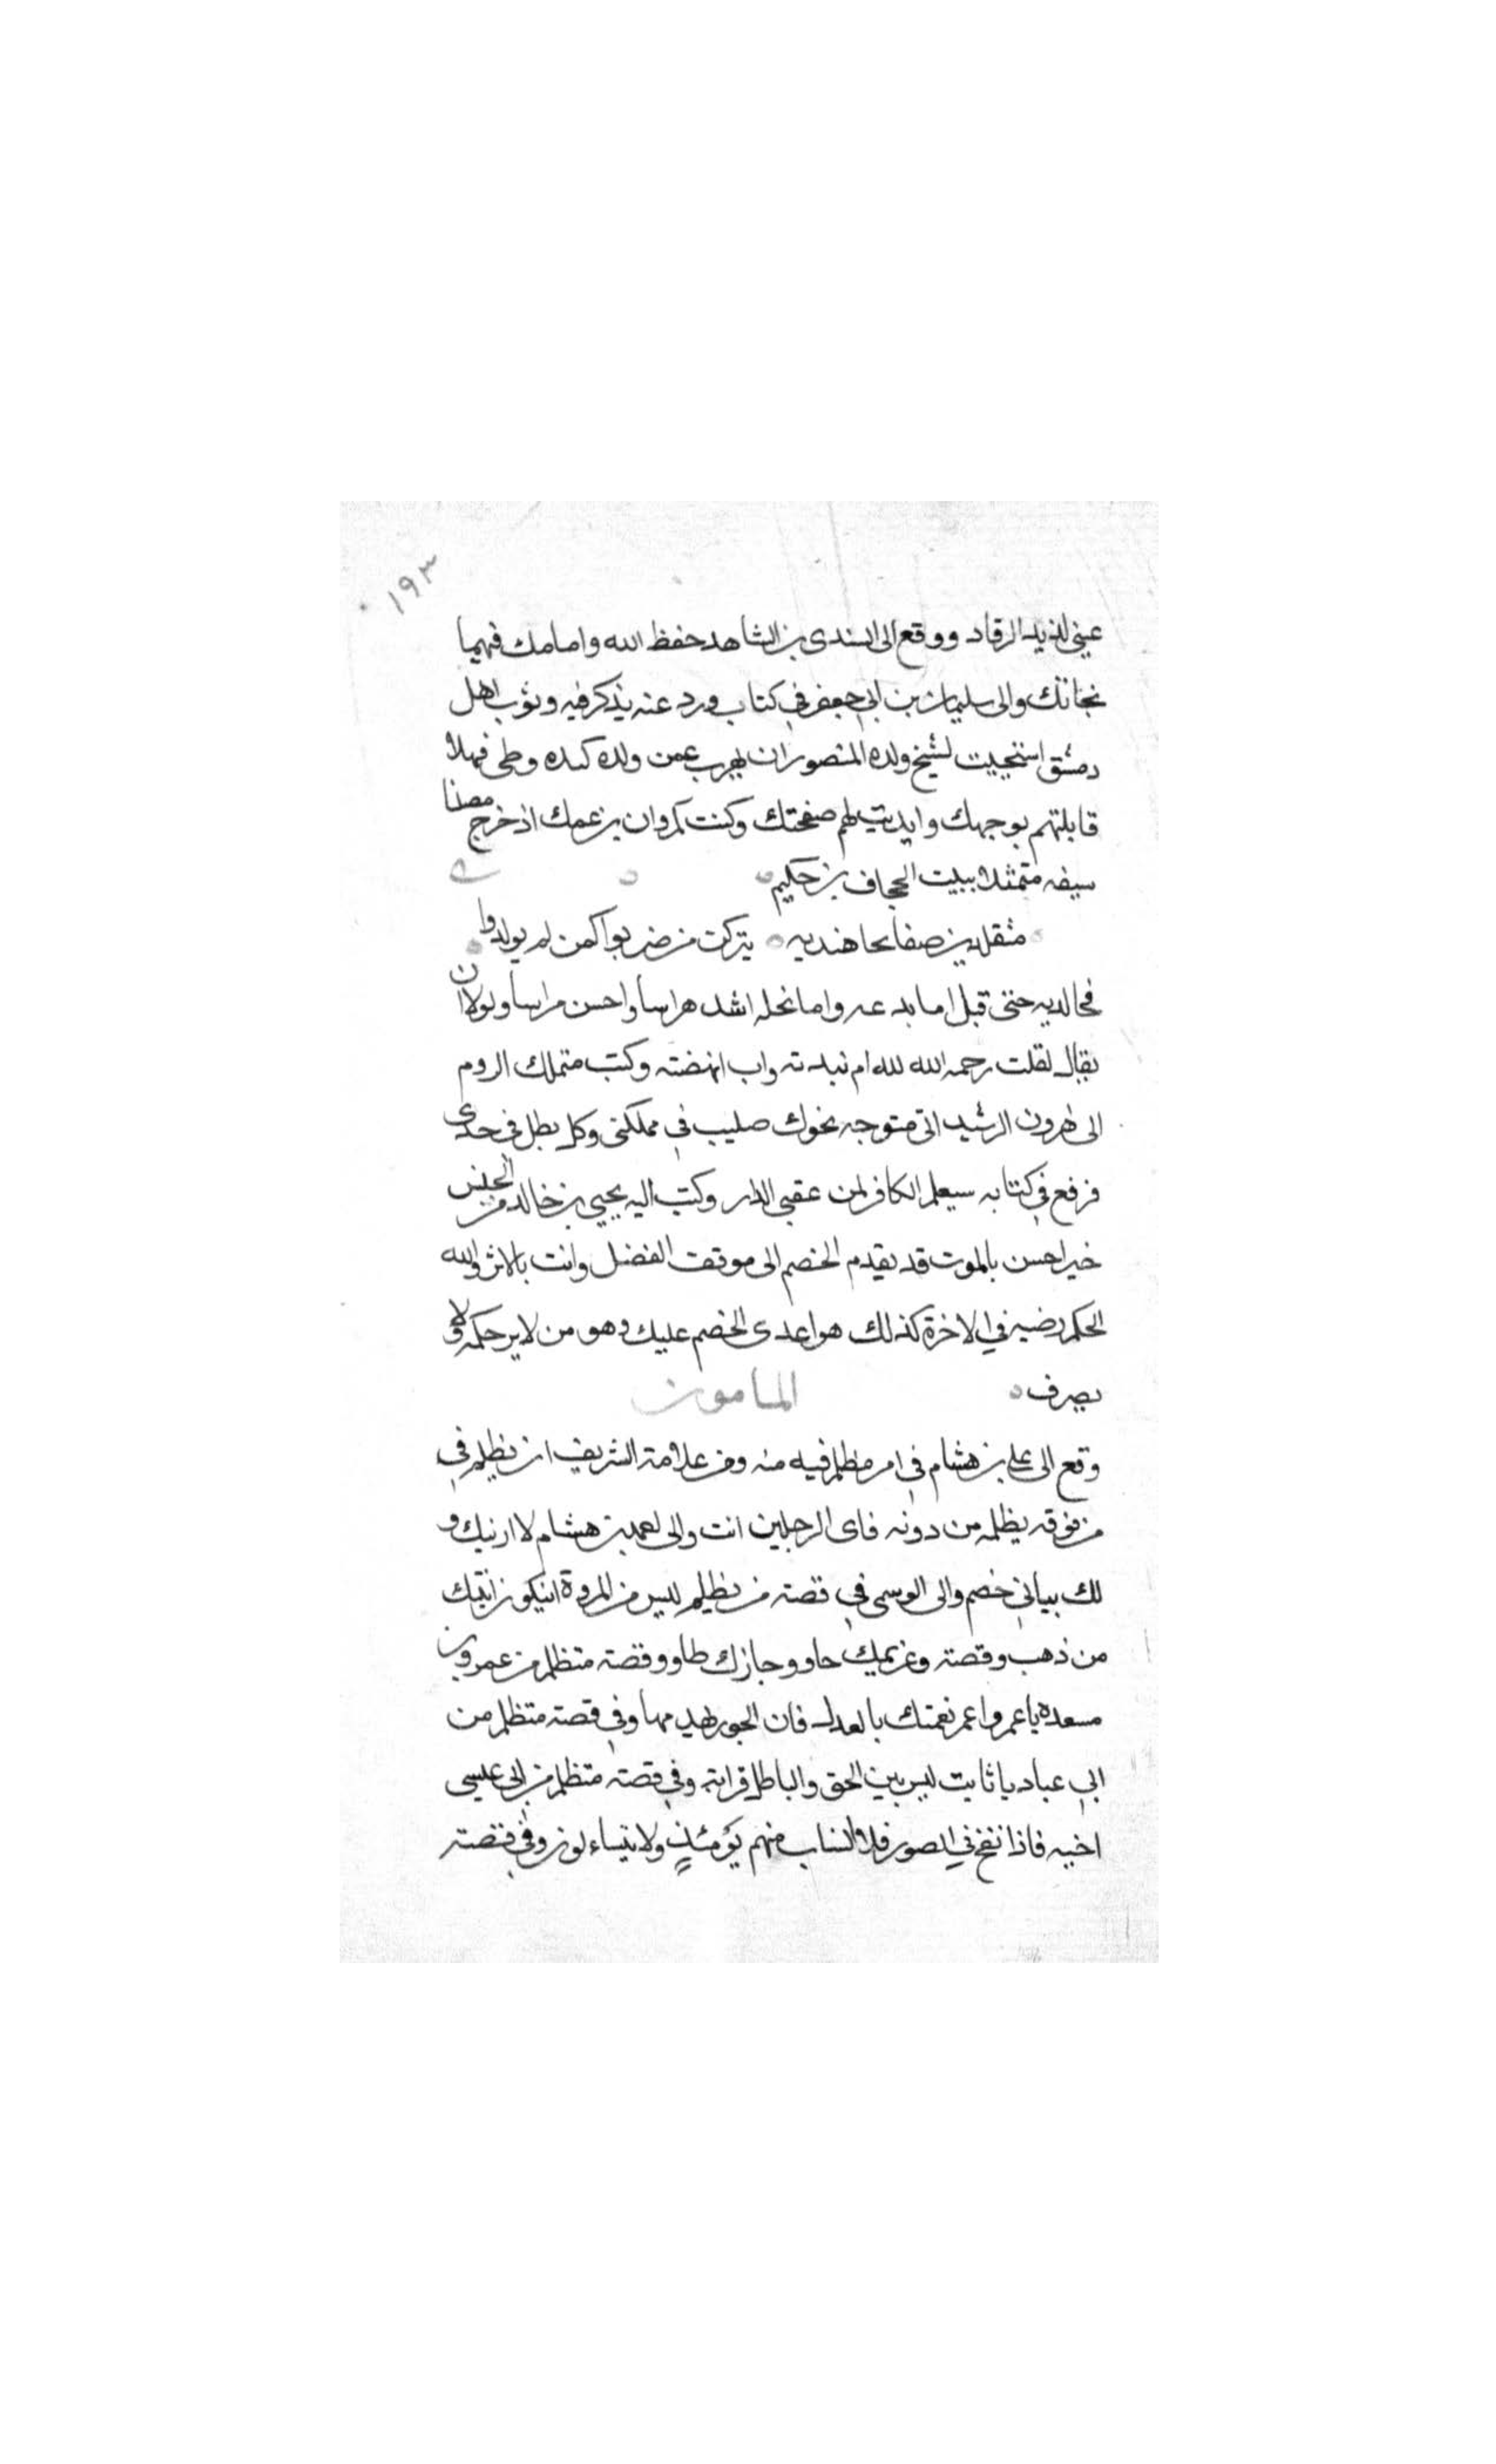 ١٩٣
عيني لذيذ الرقاد ووقع الى السندى بن الشاهد حفظ الله وامامك فهيما
نجاتك والى سليمان بن ابي جعفر في كتاب ورد عنه يذكر فيه وثوب اهل
دمشق استحييت لشيخ ولده المنصور ان يهرب عمن ولده كنده وطى فهلا
قابلتهم بوجهك وابديت لهم صفحتك وكنت كمروان بن عمك اذ خرج مصلتا
سيفه متمثلا ببيت الحجاف بن حكيم
متقلدين صفايحا هنديه يتركن من ضربوا كمن لم يولدوا
فجالد به حتى قبل اشد هراسا واحسن مراسا ولولا ان
يقال لقلت رحمه الله لله ام واب انهضته وكتب متملك الروم
الى هرون الرشيد انى متوجه نحوك صليب في مملكتى وكل بطل في جندى
فرفع في كتابه سيعلم الكافر لمن عقبى الدار وكتب اليه يحيى بن خالد من الحبس
خير احسن بالموت قد يقدم الخصم الى موقف الفضل وانت بالاثر والله
الحكم رضيه في الاخرة كذلك هو اعدى الخصم عليك وهو من لا يرحكمه ولا
يصرف
المامون
وقع الى علي بن هشام في امر مظلم فيه منه ومن علامة الشريف ان يظلم في
من فوقه يظلمه من دونه فاى الرجلين انت والى هشام لا ادنيك و
لك ببيانى خصم والى في قصة من يظلم ليس من المروة انيكون انيتك
من ذهب وقصته وغريمك حاو وجازك طاو وقصته متظلم من عمرو بن
مسعدة يا عمرو اعمر نعمتك بالعدل فان الجور يهدمها وفي قصة متظلم من
ابي عباد يا ثابت ليس بين الحق والباطل قرابة وفي قصته متظلم من ابى عيسى
اخيه فاذا نفخ في الصور فلا انساب منهم يؤمئذ ولا يتساءلون وفي قصته